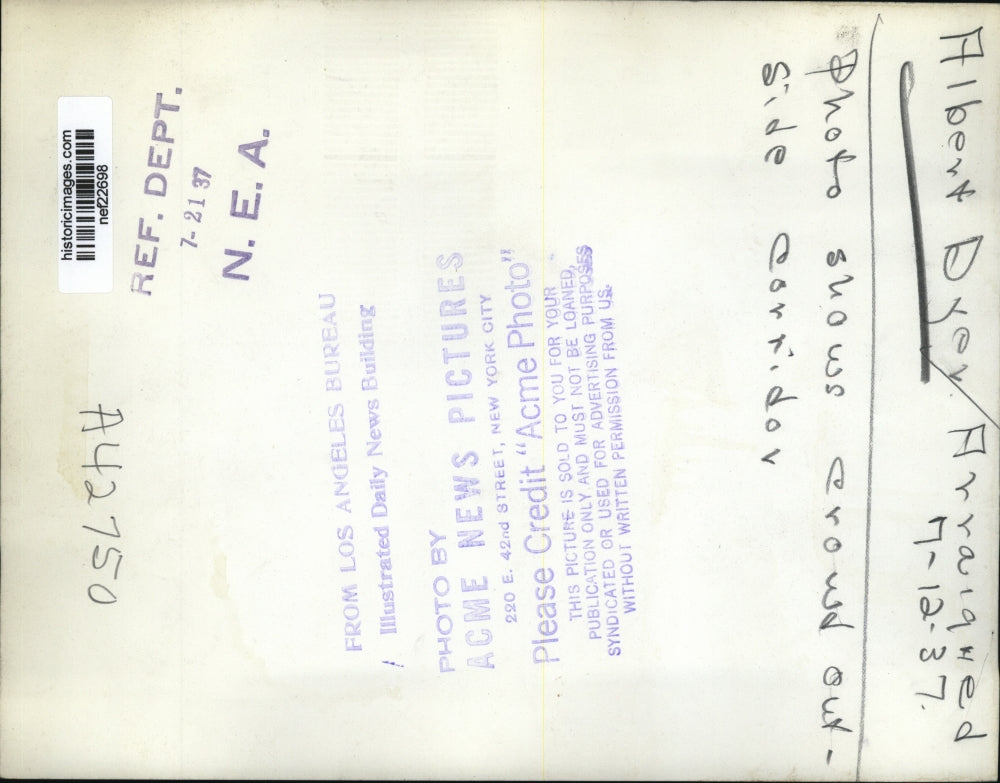 Albert Dyer Arraigned
7-12-37.
Photo shows crowd out-
side corridor
historicimages.com
nef22698
REF. DEPT.
7-21 37
N. E. A.
FROM LOS ANGELES BUREAU
Illustrated Daily News Building
PHOTO BY
ACME NEWS PICTURES
220 E. 42nd STREET, NEW YORK CITY
Please Credit "Acme Photo"
THIS PICTURE IS SOLD TO YOU FOR YOUR
PUBLICATION ONLY AND MUST NOT BE LOANED,
SYNDICATED OR USED FOR ADVERTISING PURPOSES
WITHOUT WRITTEN PERMISSION FROM US.